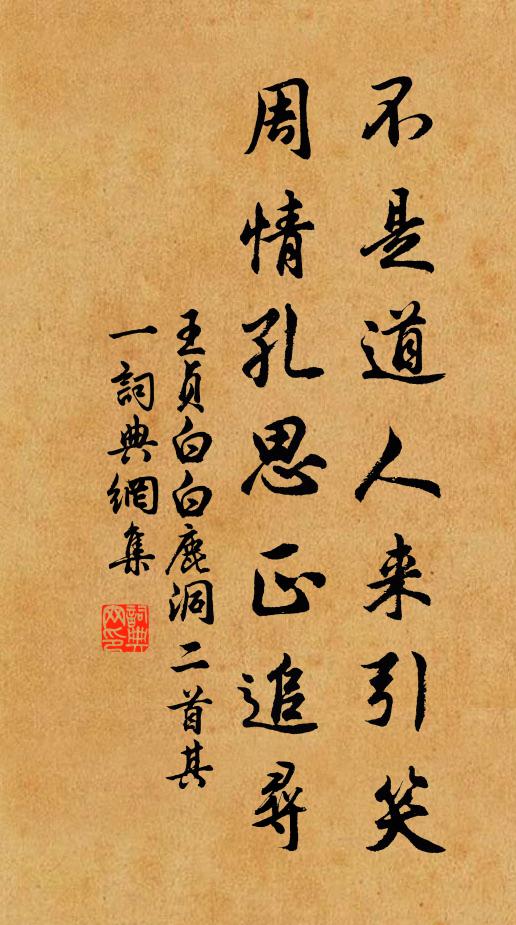 不是道人来引笑
周情孔思正追尋
王貞白白鹿洞二首其
一詞典網集
詞典
网印